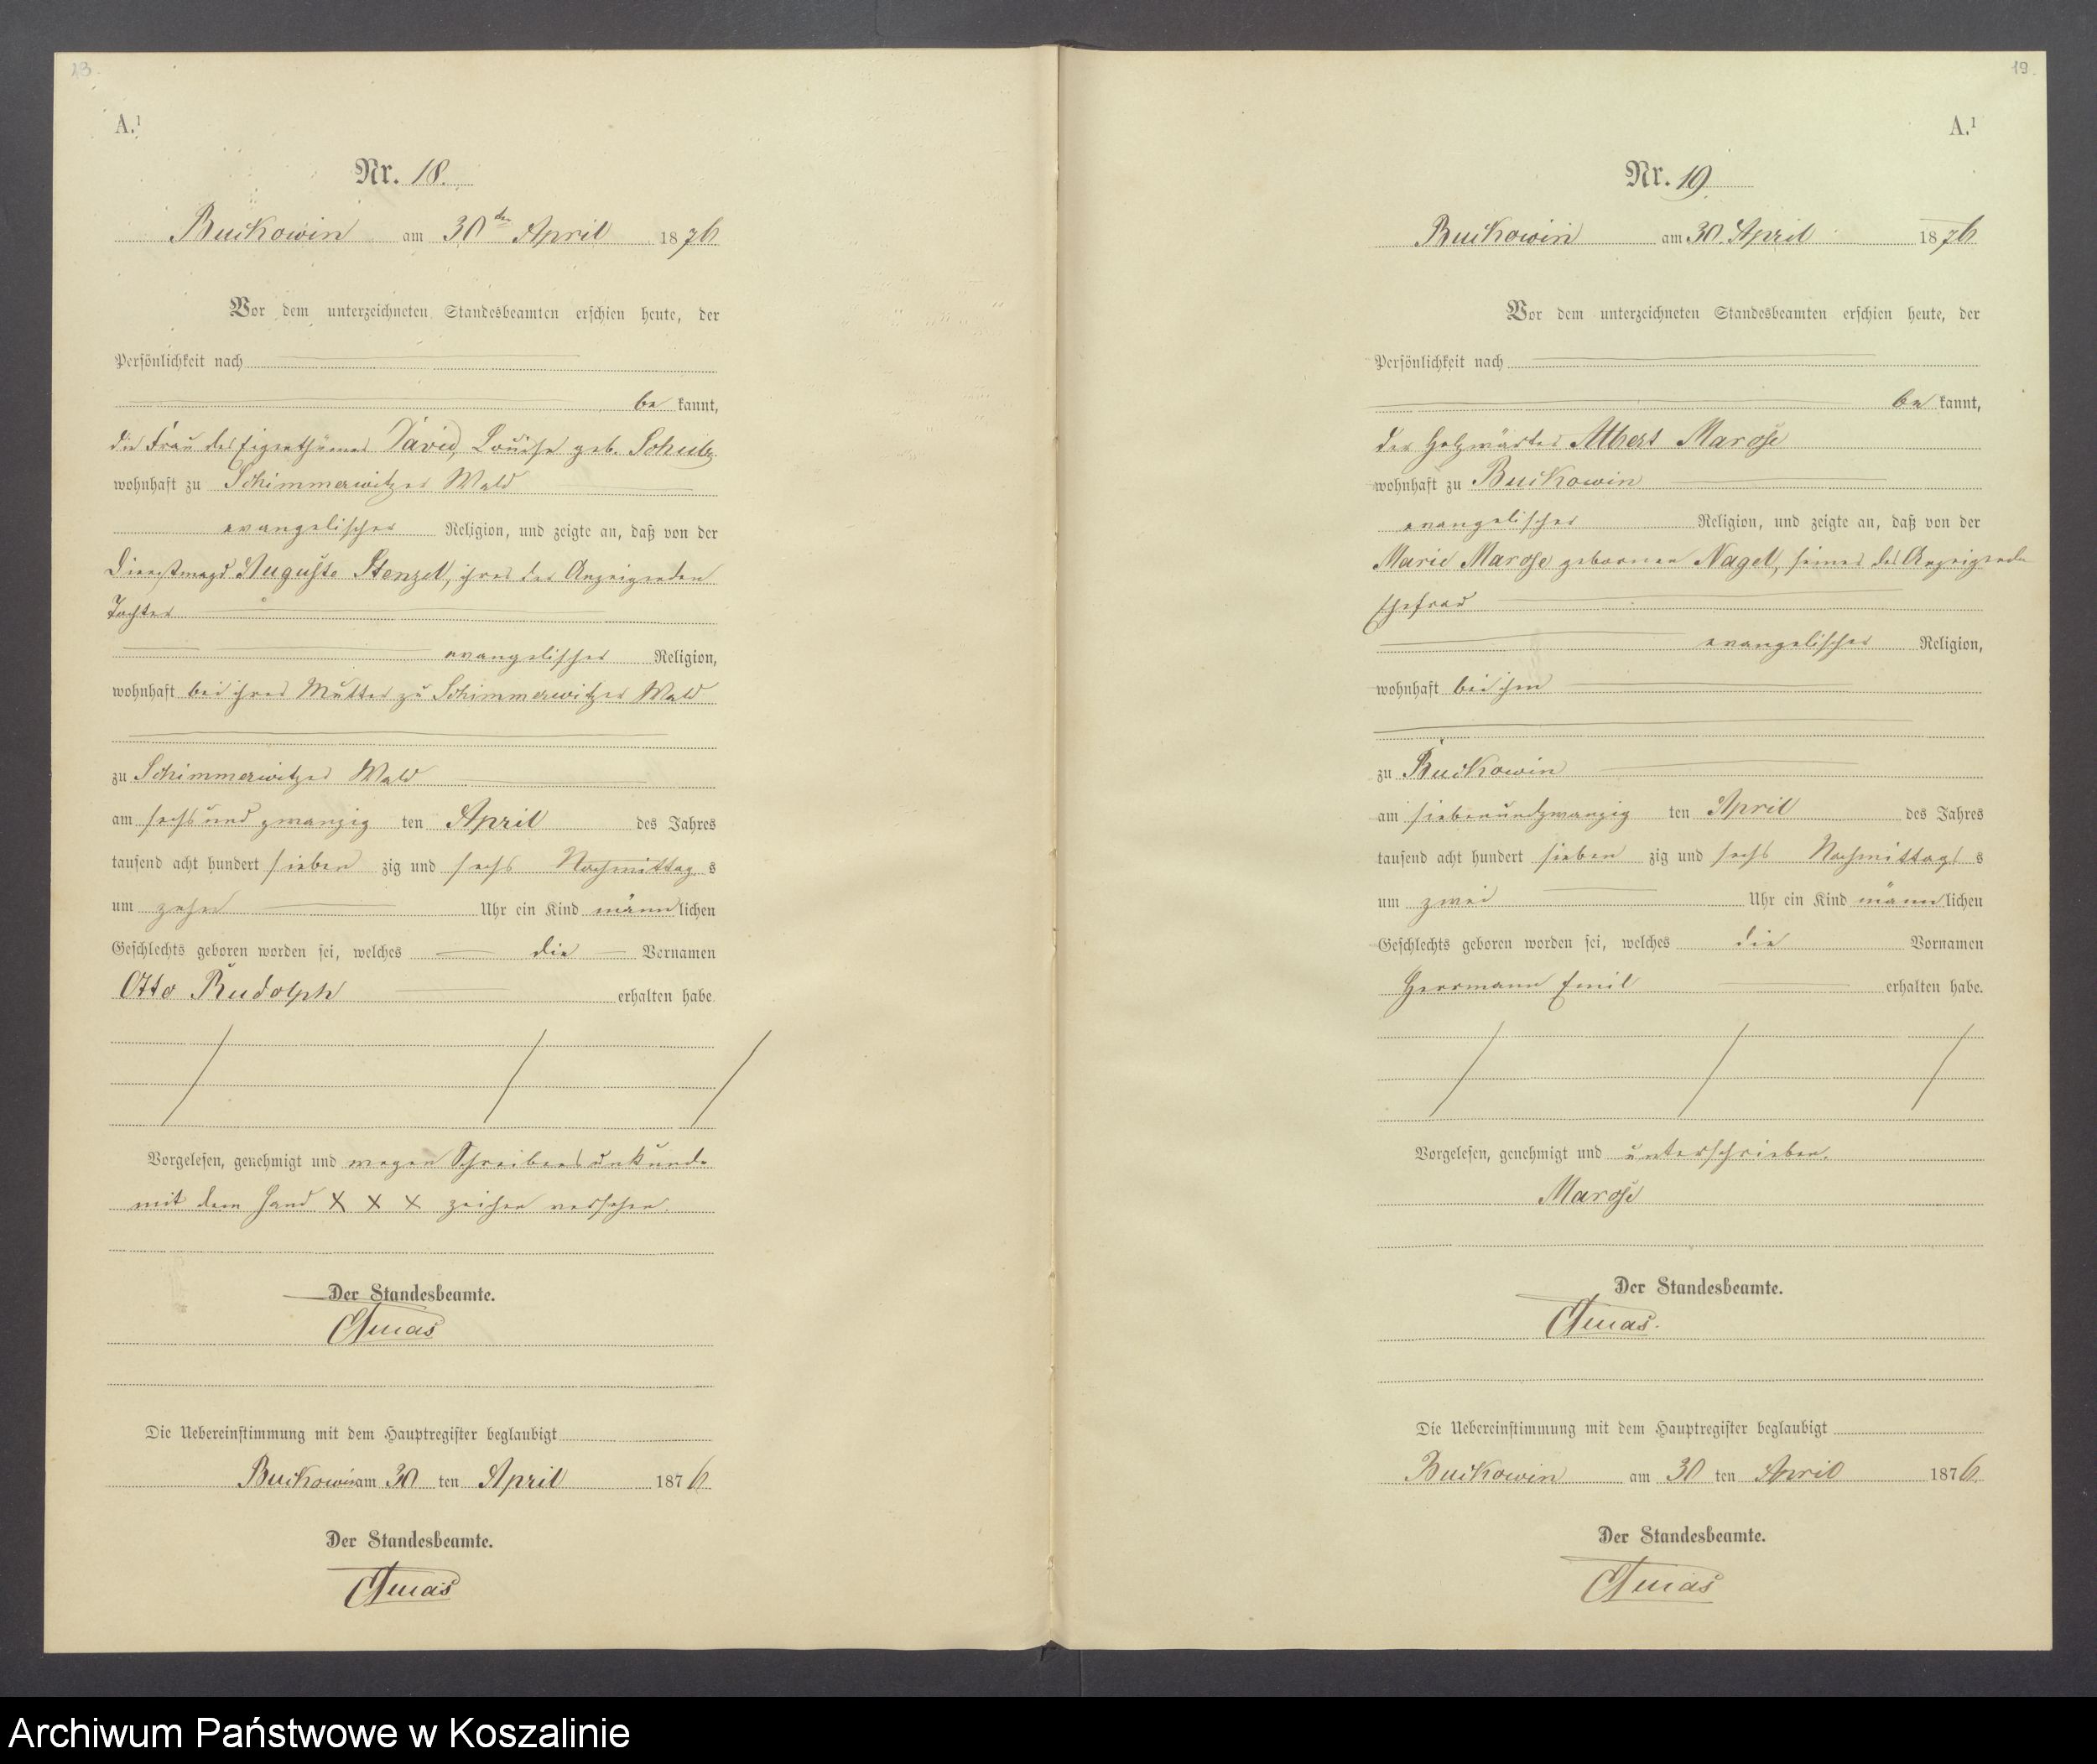 A.¹
Nr. 18.
Buckowin am 30ten April 1876
Vor dem unterzeichneten Standesbeamten erschien heute, der
Persönlichkeit nach
be kannt,
die Frau des Eigenthümer David, Louise geb. Schulz
wohnhaft zu Schimmerwitzer Wald
evangelischer Religion, und zeigte an, daß von der
Dienstmagd Auguste Stenzel, ihrer der Anzeigenden
Tochter
evangelischer Religion,
wohnhaft bei ihrer Mutter zu Schimmerwitzer Wald
zu Schimmerwitzer Wald
am sechs und zwanzig ten April des Jahres
tausend acht hundert sieben zig und sechs Nachmittag s
um zehn Uhr ein Kind männ lichen
Geschlechts geboren worden sei, welches die Vornamen
Otto Rudolph erhalten habe
Vorgelesen, genehmigt und wegen Schreibensunkunde
mit dem Hand X X X zeichen versehen.
Der Standesbeamte.
Die Uebereinstimmung mit dem Hauptregister beglaubigt
Buckowin am 30 ten April 1876
Der Standesbeamte.
19.
A.¹
Nr. 19.
Buckowin am 30. April 1876
Vor dem unterzeichneten Standesbeamten erschien heute, der
Persönlichkeit nach
be kannt,
der Holzwärter Albert Marose
wohnhaft zu Buckowin
evangelischer Religion, und zeigte an, daß von der
Marie Marose geborenen Nagel, seiner des Anzeigenden
Ehefrau
evangelischer Religion,
wohnhaft bei ihm
zu Buckowin
am siebenundzwanzig ten April des Jahres
tausend acht hundert sieben zig und sechs Nachmittag s
um zwei Uhr ein Kind männ lichen
Geschlechts geboren worden sei, welches die Vornamen
Herrmann Emil erhalten habe.
Vorgelesen, genehmigt und unterschrieben.
Marose
Der Standesbeamte.
Die Uebereinstimmung mit dem Hauptregister beglaubigt
Buckowin am 30 ten April 1876.
Der Standesbeamte.
Archiwum Państwowe w Koszalinie